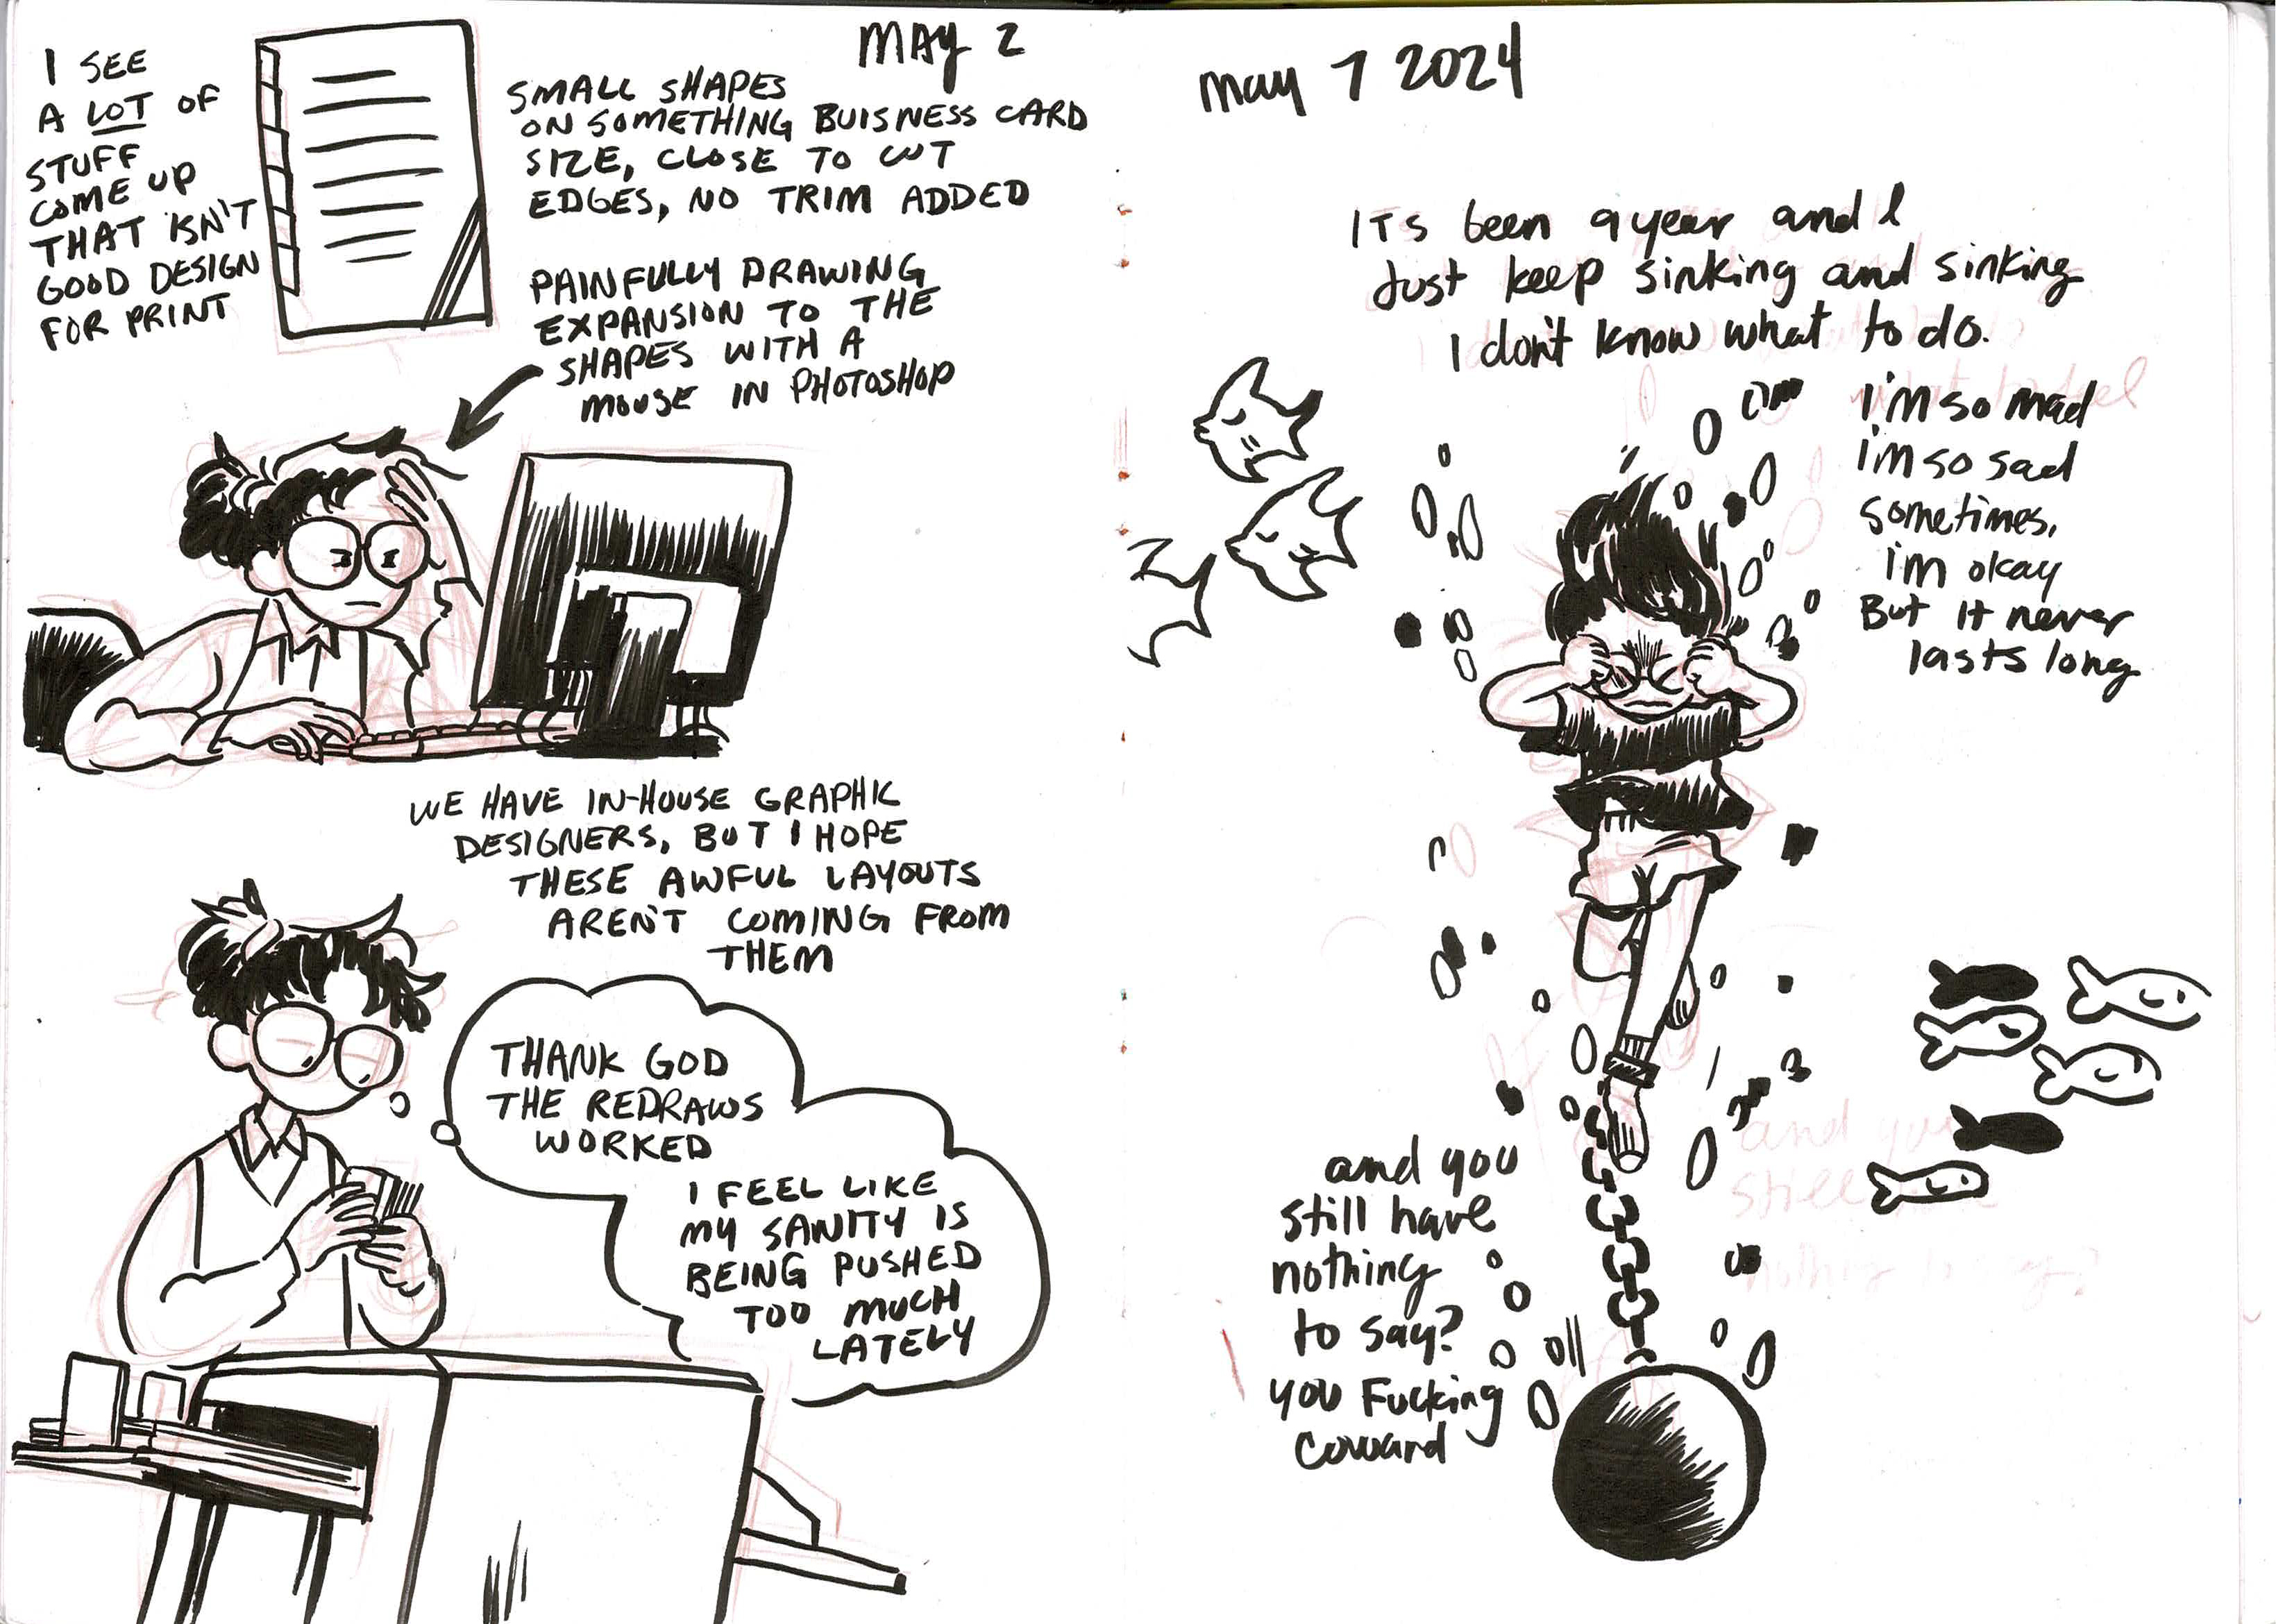 MAY 2
I SEE
A LOT OF
STUFF
COME UP
THAT ISN'T
GOOD DESIGN
FOR PRINT
SMALL SHAPES
ON SOMETHING BUISNESS CARD
SIZE, CLOSE TO CUT
EDGES, NO TRIM ADDED
PAINFULLY DRAWING
EXPANSION TO THE
SHAPES WITH A
MOUSE IN PHOTOSHOP
WE HAVE IN-HOUSE GRAPHIC
DESIGNERS, BUT I HOPE
THESE AWFUL LAYOUTS
AREN'T COMING FROM
THEM
THANK GOD
THE REDRAWS
WORKED
I FEEL LIKE
MY SANITY IS
BEING PUSHED
TOO MUCH
LATELY
may 7 2024
ITs been a year and I
Just keep sinking and sinking
I don't know what to do.
I'm so mad
I'm so sad
sometimes,
i'm okay
But it never
lasts long
and you
still have
nothing
to say?
you Fucking
coward